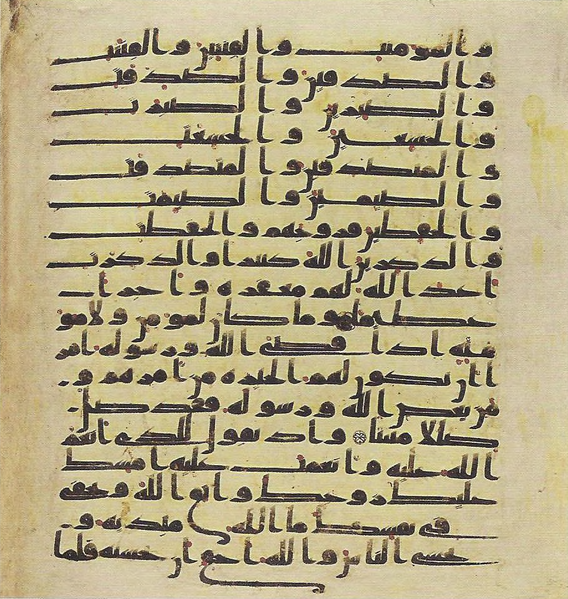 والمومنت والقنتين والقنتت
والصدقين والصدقت
والصبرين والصبرت
والخشعين والخشعت
والمتصدقين والمتصدقت
والصيمين والصيمت
والحفظين فروجهم والحفظت
والذكرين الله كثيرا والذكرت
اعد الله لهم مغفرة واجرا
عظيما وما كان لمومن ولا مو
منة اذا قضى الله ورسوله امر
ا ان يكون لهم الخيرة من امرهم و
من يعص الله ورسوله فقد ضل
ضللا مبينا واذ تقول للذي انعم
الله عليه وانعمت عليه امسك
عليك زوجك واتق الله وتخفي
في نفسك ما الله مبديه و
تخشى الناس والله احق ان تخشيه فلما